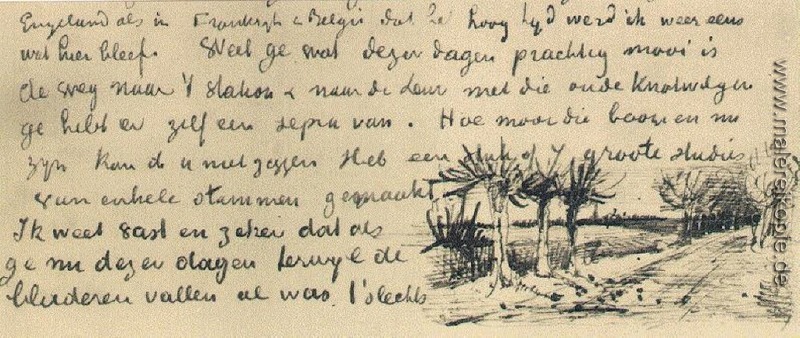 Engeland als in Frankrijk & België dat het hoog tijd werd ik weer eens
wat hier bleef. Weet ge wat dezer dagen prachtig mooi is
de weg naar 't station & naar de Leur met die oude Knotwilgen
ge hebt er zelf een sepia van. Hoe mooi die boomen nu
zyn kan ik u niet zeggen Heb een stuk of 7 groote studies
van enkele stammen gemaakt
Ik weet vast en zeker dat als
ge nu dezer dagen terwyl de
bladeren vallen al was 't slechts
www.malereikopie.de